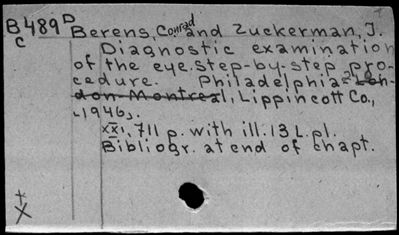 B489D Berens, Conrad and Zuckerman, J.
C Diagnostic examination
of the eye. step-by-step pro-
cedure. Philadelphia-Lon-
don-Montreal, Lippincott Co.,
[1946].
XXI, 711 p. with ill. 13 L. pl.
Bibliogr. at end of chapt.
+
X